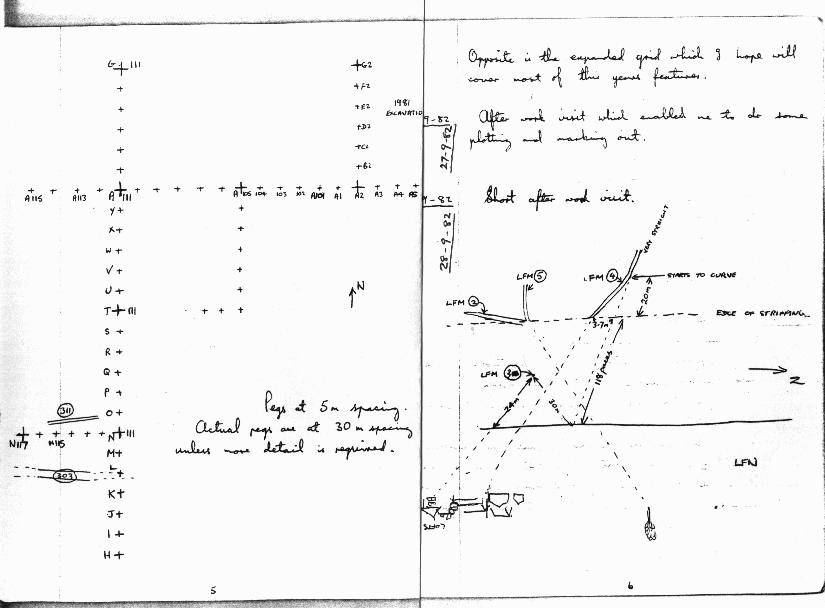 G 111
G2
F2
E2
D2
C2
B2
1981
EXCAVATIO
A115 A113 A 111 A 105 104 103 102 A101 A1 A2 A3 A4 A5
Y
X
W
V
U
T 111
S
R
Q
P
O
N117 N115 N 111
M
L
K
J
I
H
N
311
303
Pegs at 5m spacing.
Actual pegs are at 30m spacing
unless more detail is required.
5
Opposite is the expanded grid which I hope will
cover most of this years features.
9-82
27-9-82
After work visit which enabled me to do some
plotting and marking out.
9-82
28-9-82
Short after work visit.
VERY STRAIGHT
LFM 5
LFM 4
STARTS TO CURVE
LFM 2
20m
3.7m
EDGE OF STRIPPING
118 paces
LFM 3
24m
30m
N
LFN
6